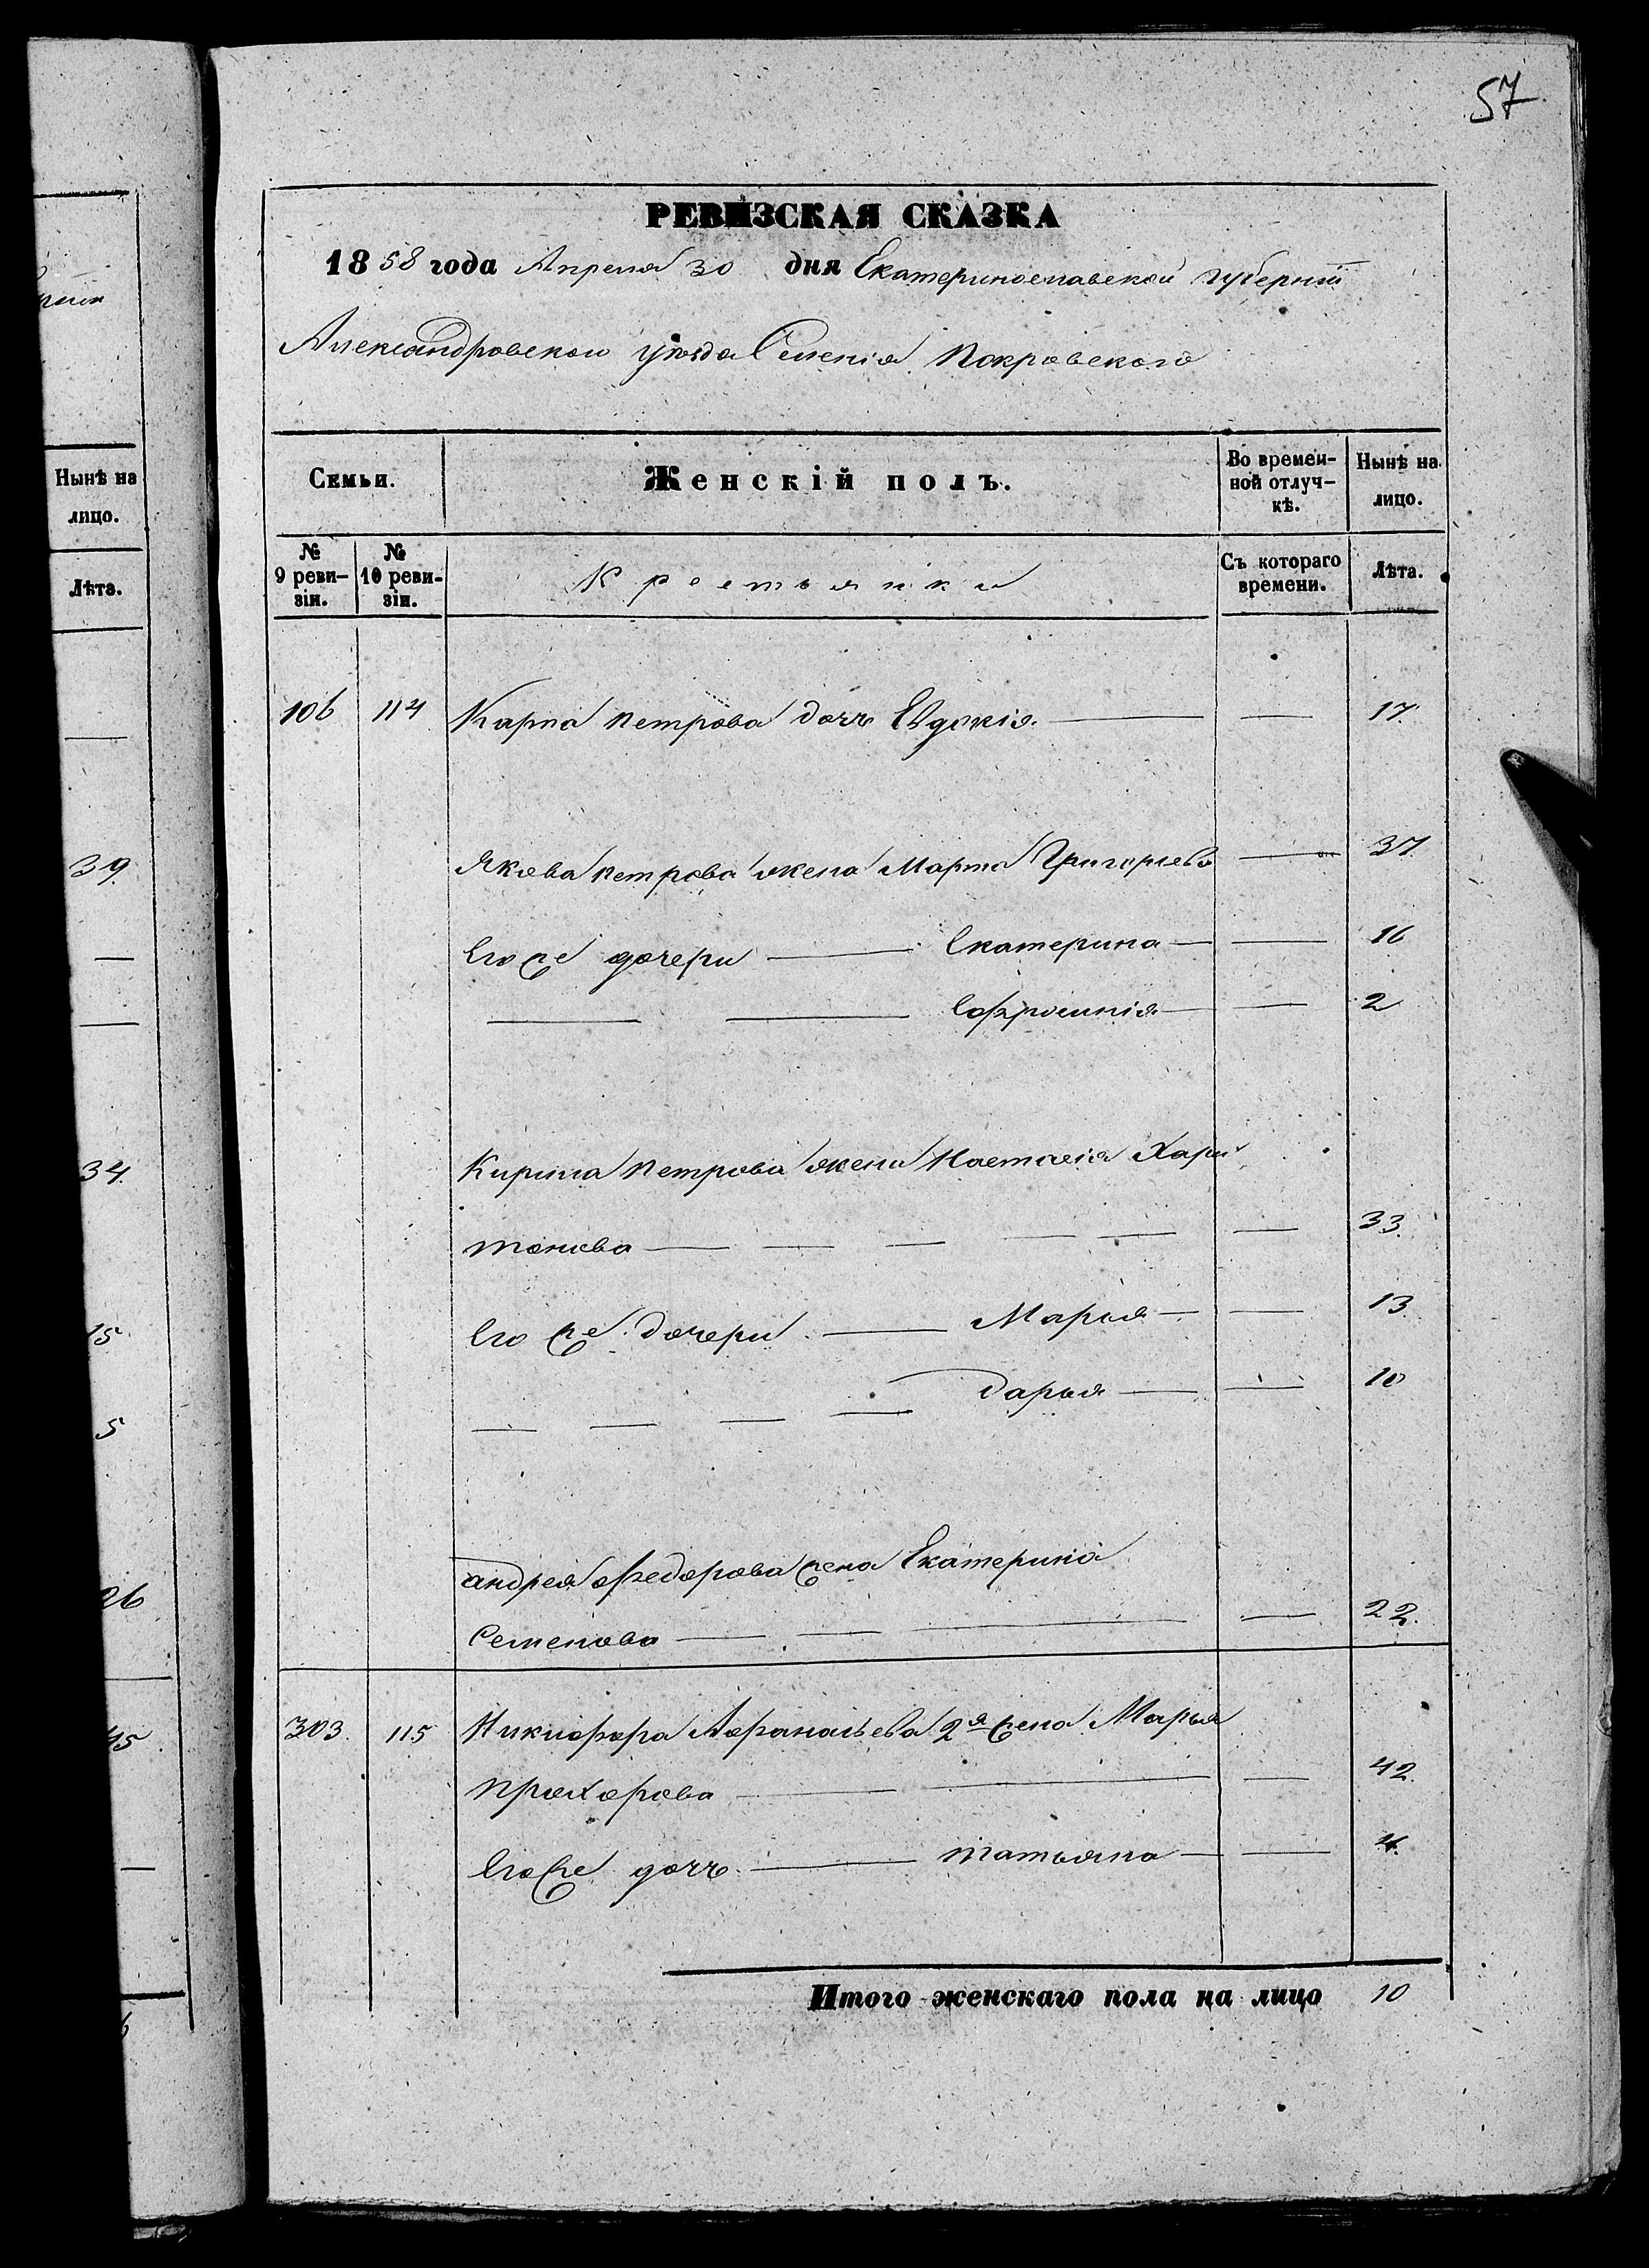 57
РЕВИЗСКАЯ СКАЗКА
1858 года Апреля 30 дня Екатеринославской губерніи
Александровскои уѣзда Селенія Покровского
Семьи.
Женскій полъ.
Во времен-
ной отлуч-
кѣ.
Нынѣ на
лицо.
№
9 реви-
зіи.
№
10 реви-
зіи.
Крестьянки
Съ котораго
времени.
Лѣта.
106 114 Карпа Петрова дочь Евдокія — — 17.
Якова Петрова жена Марта Григорьева — 37.
Его же дочери — Екатерина — — 16
— — Ефросинія — — 2
Кирила Петрова жена Настасія Хари
тонова — — — — — — 33.
Его же дочери — Марья — — 13
— — — — Дарья — — 10
Андрея Федорова жена Екатерина
Семенова — — — — 22.
303. 115 Никифора Афанасьева 2я жена Марья
Прохорова — — — 42.
Его же дочь — Татьяна — — 4.
Итого женскаго пола на лицо 10
Нынѣ на
лицо.
Лѣта.
39.
34.
15
5
26
45